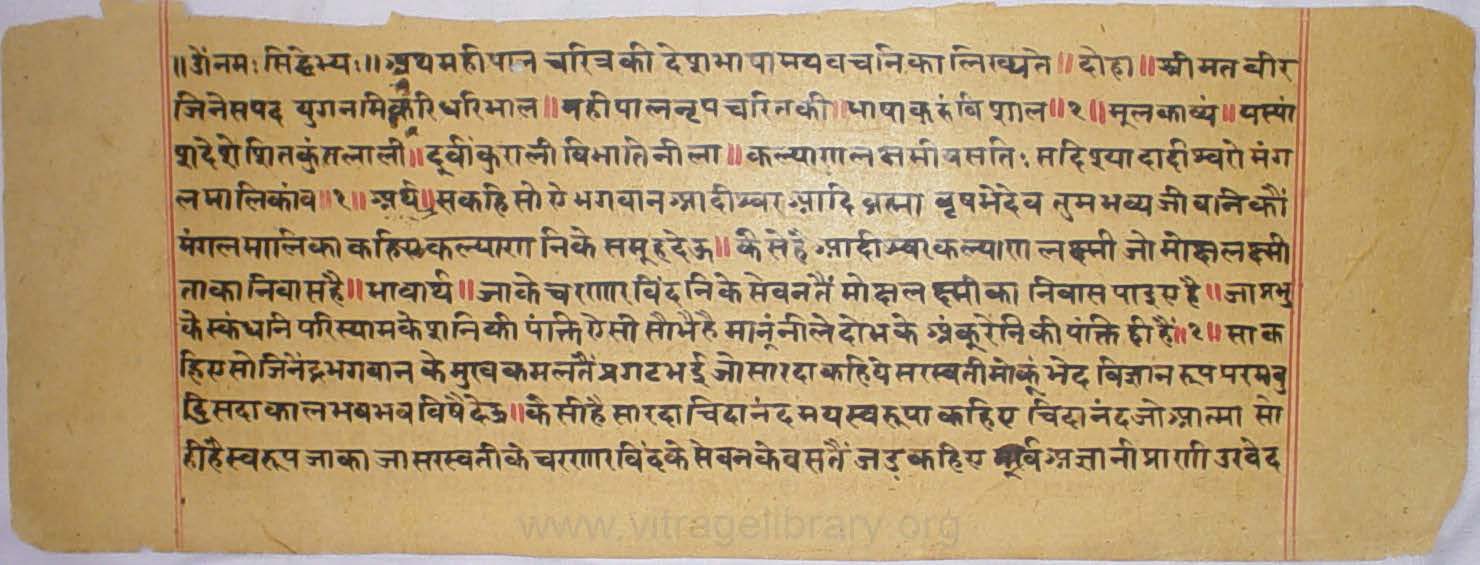 ॥ॐनमःसिद्धेभ्यः॥अथमहीपालचरित्रकीदेशभाषामयवचनिकालिख्यंते॥दोहा॥श्रीमतवीर
जिनेसपदयुगनमिकरिधरिभाल॥महीपालनृपचरितकी॥भाषाकहंविशाल॥१॥मूलकाव्यं॥यस्यां
शदेशेशितकुंतलाली॥दूर्वांकुरालीविभातिनीला॥कल्याणलक्षमीवसतिःसदिश्यादादीश्वरोमंग
लमालिकांव॥१॥अर्थ॥सकहिसोऐभगवानआदीश्वरआदिब्रात्मावृषभदेवतुमभव्यजीवनिकौं
मंगलमालिकाकहिएकल्याणनिकेसमूहदेऊ॥कैसेहैआदीश्वरकल्याणलक्ष्मीजोमोक्षलक्ष्मी
ताकानिवासहै॥भावार्थ॥जाकेचरणारविंदनिकेसेवनतैंमोक्षलक्ष्मीकानिवासपाइएहै॥जाप्रभु
केस्कंधनिपरिस्यामकेशनिकीपांक्तिऐसीसौभैहैमानूंनीलेदोभकेअंकूरेनिकीपंक्तिहीहै॥१॥साक
हिएसोजिनेंद्रभगवानकेमुखकमलतैंप्रगटभईजोसारदाकहियेसरस्वतीमोकूंभेदविज्ञानरूपपरमबु
द्धिसदाकालभवभवविषैदेउ॥कैसीहैसारदाचिदानंदमयस्वरूपाकहिएचिदानंदजोआत्मासो
हीहैस्वरूपजाकाजासरस्वतीकेचरणारविंदकेसेवनकेवसतैंजड़कहिएमूर्खअज्ञानीप्राणीउरवेद
www.vitragelibrary.org